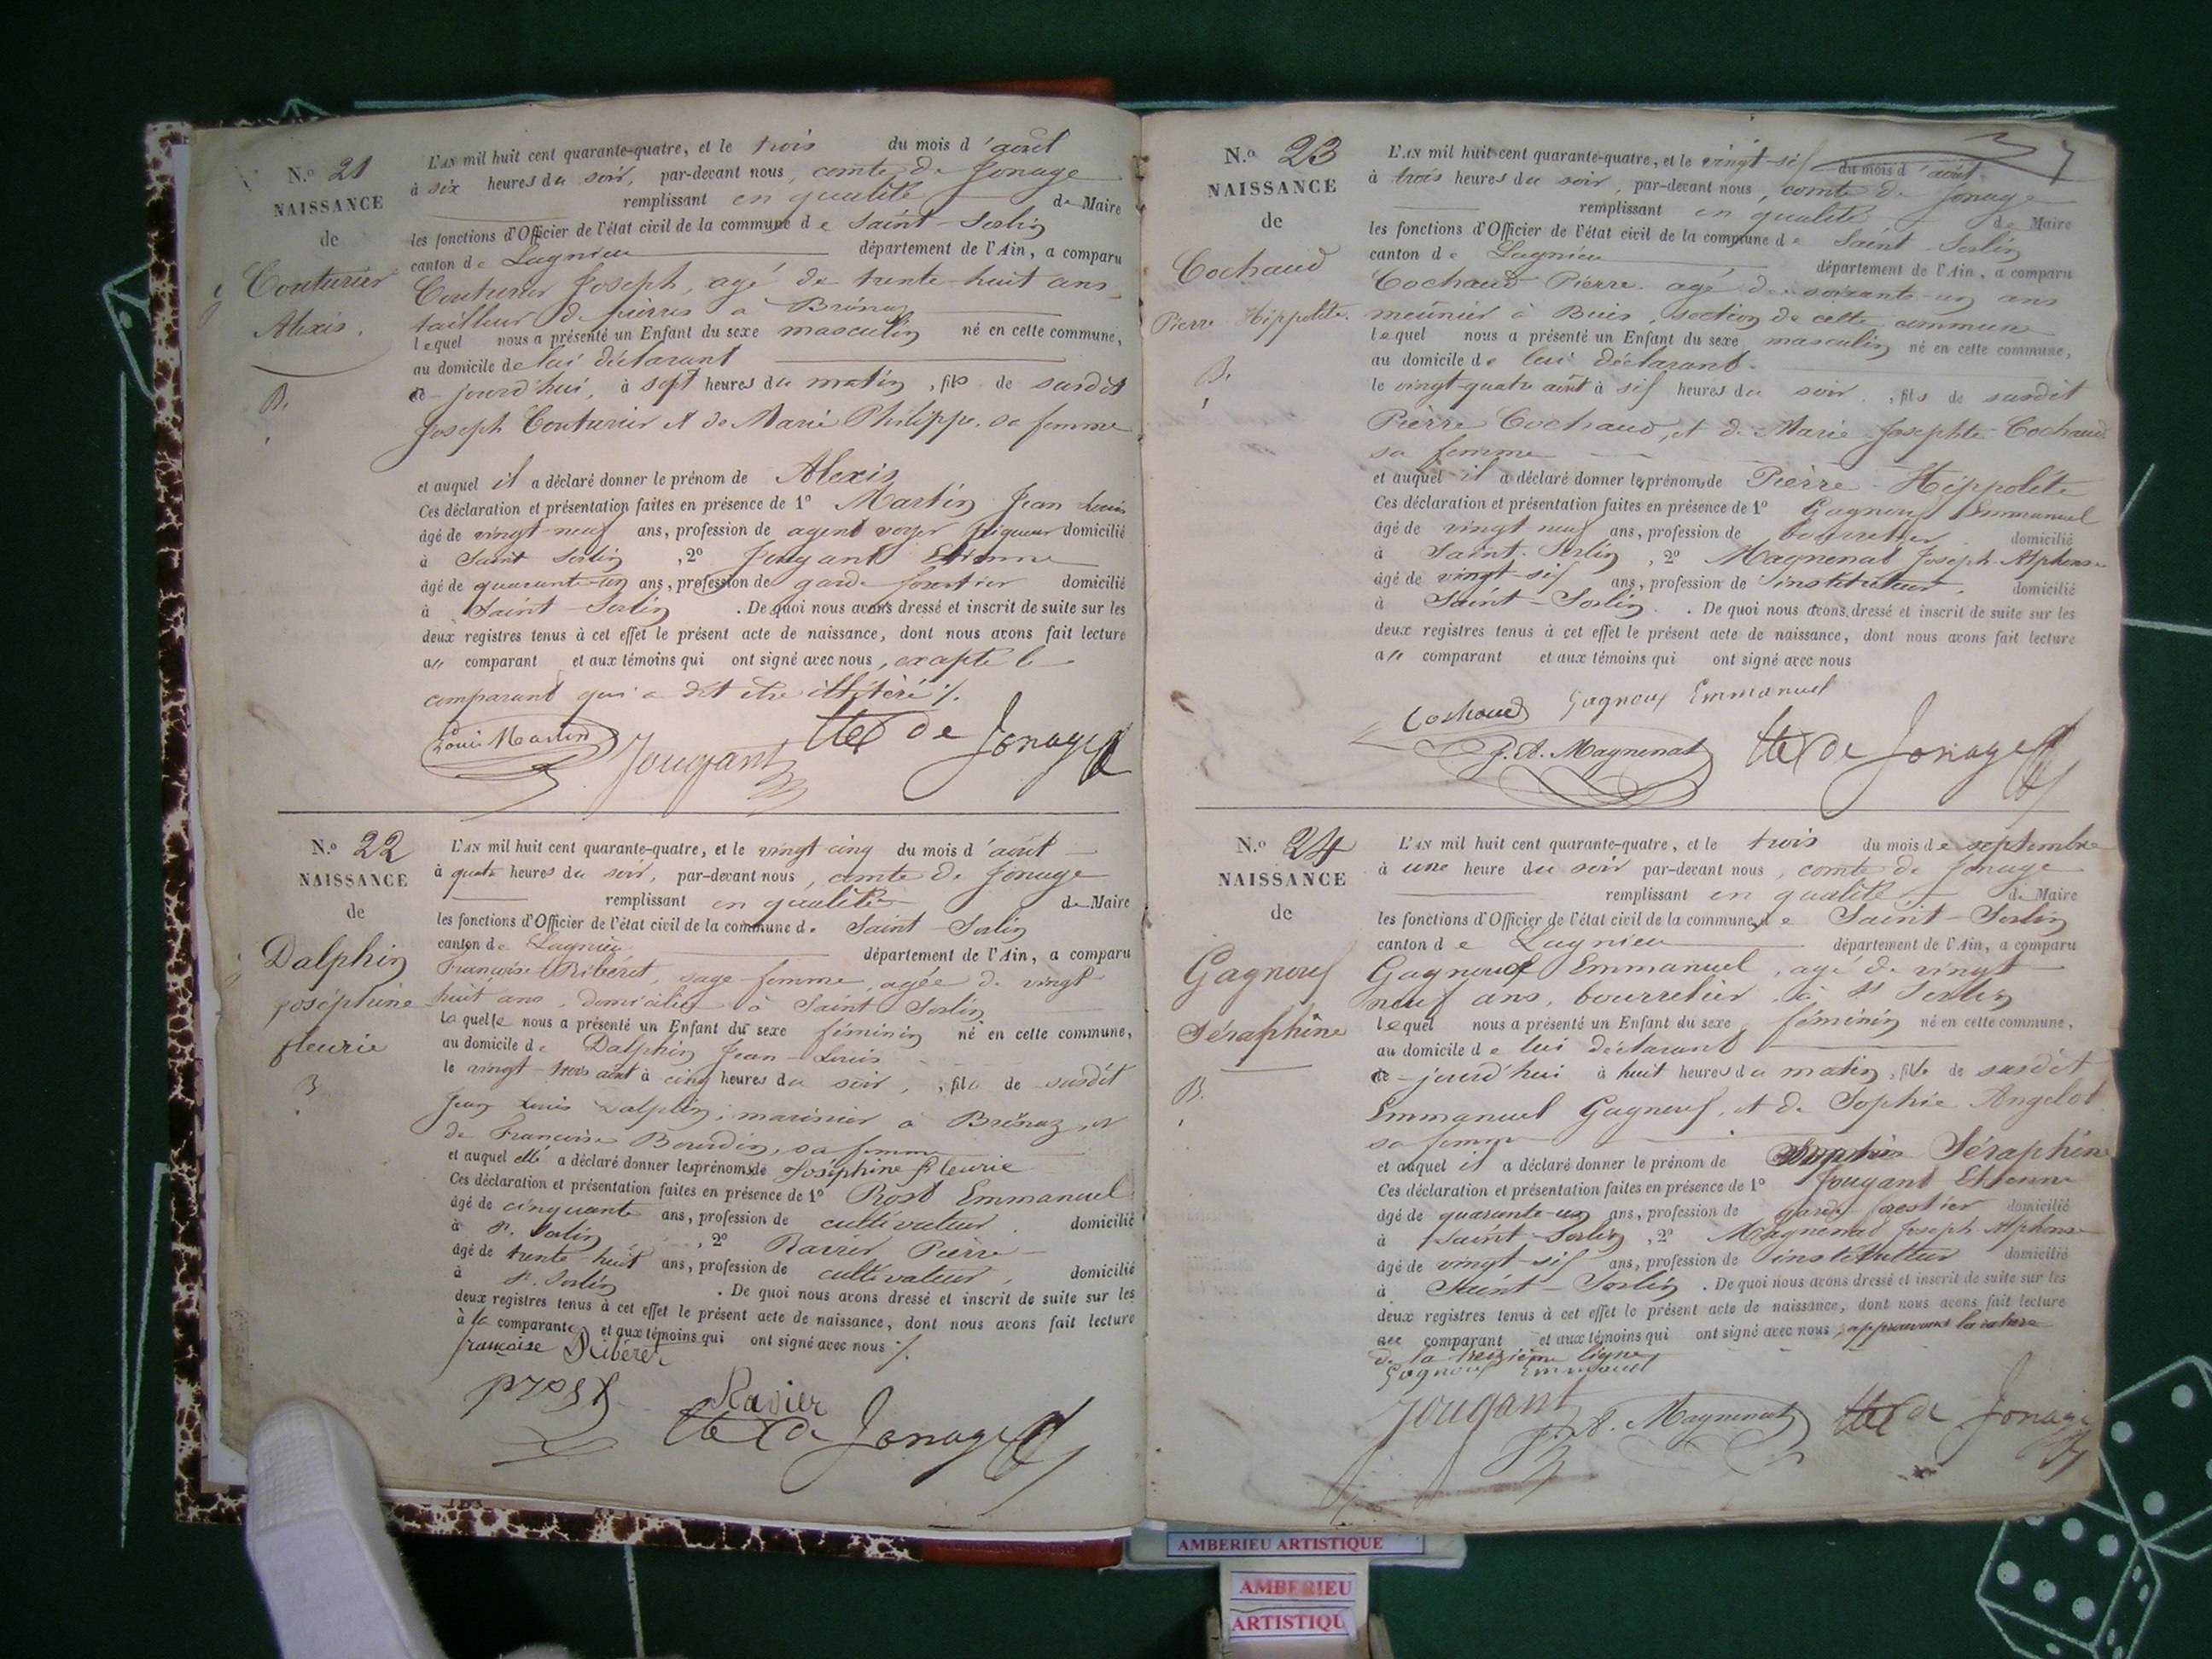 N.o 21
NAISSANCE
de
Couturier
Alexis.
B.
L'AN mil huit cent quarante-quatre, et le trois du mois d'août
à six heures du soir, par-devant nous, comte de Jonage
remplissant en qualité de Maire
les fonctions d'Officier de l'état civil de la commune de Saint-Sorlin
canton de Lagnieu département de l'Ain, a comparu
Couturier Joseph, agé de trente-huit ans,
tailleur de pierres à Brénaz
lequel nous a présenté un Enfant du sexe masculin né en cette commune,
au domicile de lui déclarant
ce-jourd'hui, à sept heures du matin, fils de susdit
Joseph Couturier et de Marie Philippe, sa femme
et auquel il a déclaré donner le prénom de Alexis
Ces déclaration et présentation faites en présence de 1o Martin Jean Louis
âgé de vingt-neuf ans, profession de agent voyer piqueur domicilié
à Saint Sorlin, 2o Jougant Etienne
âgé de quarante-un ans, profession de garde forestier domicilié
à Saint-Sorlin. De quoi nous avons dressé et inscrit de suite sur les
deux registres tenus à cet effet le présent acte de naissance, dont nous avons fait lecture
au comparant et aux témoins qui ont signé avec nous, excepté le
comparant qui a dit être illitéré ./.
Louis Martin Jougant Cte de Jonage
N.o 22
NAISSANCE
de
Dalphin
joséphine
fleurie
B
L'AN mil huit cent quarante-quatre, et le vingt cinq du mois d'août
à quatre heures du soir, par-devant nous, comte de Jonage
remplissant en qualité de Maire
les fonctions d'Officier de l'état civil de la commune de Saint-Sorlin
canton de Lagnieu département de l'Ain, a comparu
Françoise Ribéret, sage-femme, agée de vingt-
huit ans, domiciliée à Saint Sorlin
laquelle nous a présenté un Enfant du sexe féminin né en cette commune,
au domicile de Dalphin Jean-Louis
le vingt-trois août à cinq heures du soir, fille de susdit
Jean Louis Dalphin, marinier à Brénaz, et
de Françoise Bourdin, sa femme
et auquel elle a déclaré donner les prénoms de Joséphine fleurie
Ces déclaration et présentation faites en présence de 1o Prost Emmanuel
âgé de cinquante ans, profession de cultivateur. domicilié
à St. Sorlin, 2o Ravier Pierre
âgé de trente-huit ans, profession de cultivateur, domicilié
à St. Sorlin. De quoi nous avons dressé et inscrit de suite sur les
deux registres tenus à cet effet le présent acte de naissance, dont nous avons fait lecture
à la comparante et aux témoins qui ont signé avec nous ./.
françoise Ribéret
prost Ravier
Cte de Jonage
N.o 23
NAISSANCE
de
Cochaud
Pierre Hippolite.
B.
L'AN mil huit cent quarante-quatre, et le vingt-six du mois d'août
à trois heures du soir, par-devant nous, comte de Jonage
remplissant en qualité de Maire
les fonctions d'Officier de l'état civil de la commune de Saint-Sorlin
canton de Lagnieu département de l'Ain, a comparu
Cochaud Pierre. agé de soixante-un ans
meûnier à Buis, section de cette commune
lequel nous a présenté un Enfant du sexe masculin né en cette commune,
au domicile de lui déclarant.
le vingt-quatre août à six heures du soir, fils de susdit
Pierre Cochaud, et de Marie Josephte Cochaud
sa femme
et auquel il a déclaré donner les prénoms de Pierre-Hippolite
Ces déclaration et présentation faites en présence de 1o Gagneux Emmanuel
âgé de vingt neuf ans, profession de bourrelier domicilié
à Saint-Sorlin, 2o Magnenat Joseph-Alphonse
âgé de vingt-six ans, profession de instituteur, domicilié
à Saint-Sorlin. De quoi nous avons dressé et inscrit de suite sur les
deux registres tenus à cet effet le présent acte de naissance, dont nous avons fait lecture
au comparant et aux témoins qui ont signé avec nous
Cochaud Gagneux Emmanuel
J. A. Magnenat Cte de Jonage
N.o 24
NAISSANCE
de
Gagneux
Séraphine
B.
L'AN mil huit cent quarante-quatre, et le trois du mois de septembre
à une heure du soir par-devant nous, comte de Jonage
remplissant en qualité de Maire
les fonctions d'Officier de l'état civil de la commune de Saint-Sorlin
canton de Lagnieu département de l'Ain, a comparu
Gagneux Emmanuel, agé de vingt
neuf ans, bourrelier, à St Sorlin
lequel nous a présenté un Enfant du sexe féminin né en cette commune,
au domicile de lui déclarant
ce-jourd'hui à huit heures du matin, fille de susdit
Emmanuel Gagneux, et de Sophie Angelot
sa femme
et auquel il a déclaré donner le prénom de Séraphine
Ces déclaration et présentation faites en présence de 1o Jougant Etienne
âgé de quarante-un ans, profession de garde forestier domicilié
à Saint-Sorlin, 2o Magnenat Joseph Alphonse
âgé de vingt-six ans, profession de instituteur domicilié
à Saint-Sorlin. De quoi nous avons dressé et inscrit de suite sur les
deux registres tenus à cet effet le présent acte de naissance, dont nous avons fait lecture
au comparant et aux témoins qui ont signé avec nous, approuvons la rature
de la treizième ligne
Gagneux Emmanuel
Jougant J. A. Magnenat Cte de Jonage
AMBERIEU ARTISTIQUE
AMBERIEU
ARTISTIQU